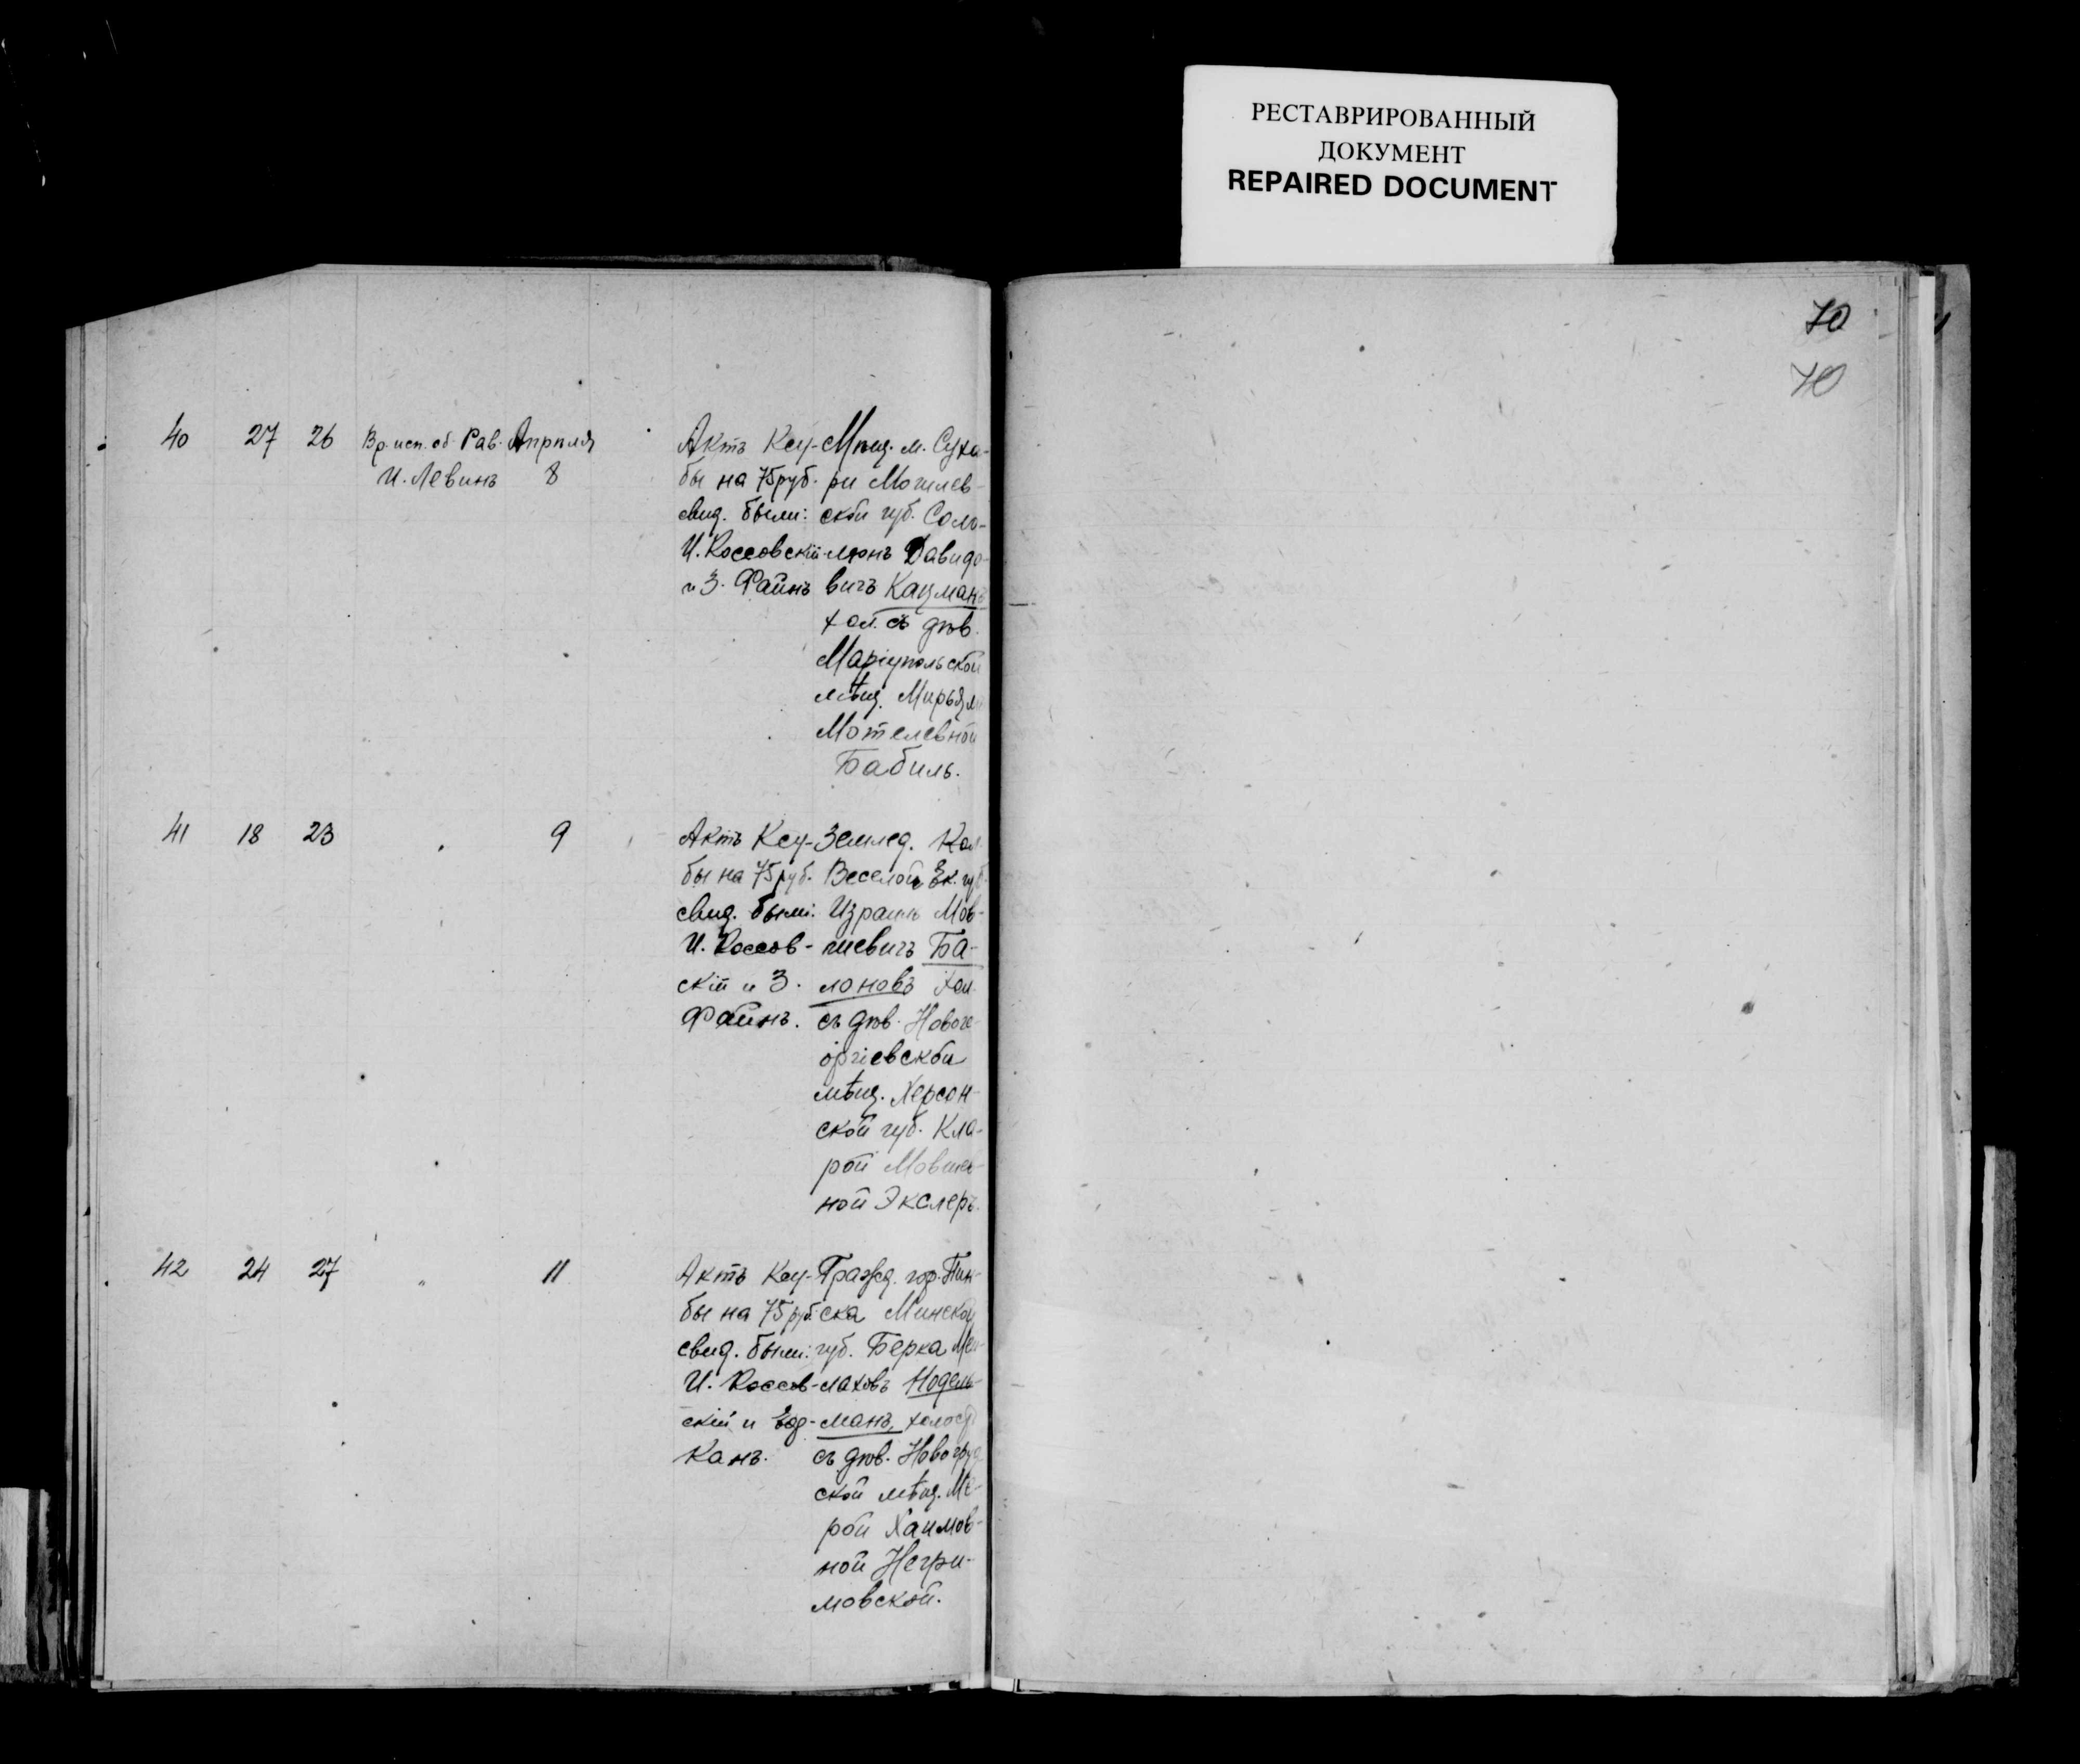 РЕСТАВРИРОВАННЫЙ
ДОКУМЕНТ
REPAIRED DOCUMENT
70
70
40 27 26 Вр. исп. об. Рав. Апрѣля
И. Левинъ 8
Актъ Кеу-
бы на 75 руб.
свид. были:
И. Коссовскій
и З. Файнъ
Мѣщ. м. Суха-
ри Могилев-
ской губ. Соло-
монъ Давидо-
вичъ Кацманъ
хол. съ дѣв.
Маріупольской
мѣщ.
Мотелевной
Бабиль.
41 18 23 " 9
Актъ Кеу-
бы на 75 руб.
свид. были:
И. Коссов-
скій и З.
Файнъ.
Землед. Кол.
Веселой Ек. губ.
Израиль Мов-
шевичъ Ба-
лоновъ хол.
съ дѣв. Новоге-
оргіевской
мѣщ. Херсон-
ской губ. Кла-
рой Мовшев-
ной Экслеръ.
42 24 27 " 11
Актъ Кеу-
бы на 75 руб.
свид. были:
И. Коссов-
скій и
Канъ.
Гражд. гор. Пин-
ска Минской
губ. Берка Мен-
лаховъ Нодель-
манъ, холост
съ дѣв. Новогруд
ской мѣщ. Ме-
рой Хаимов-
ной Негри-
мовской.